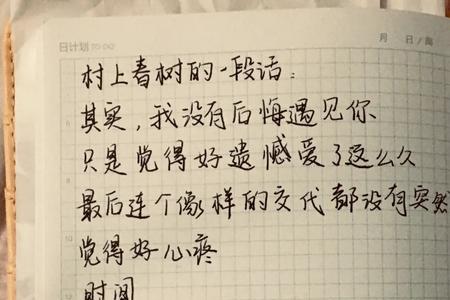 日计划 TO DO
月 日/周
村上春树的一段话：
其实，我没有后悔遇见你
只是觉得好遗憾爱了这么久
最后连个像样的交代都没有突然
觉得好心疼
时间